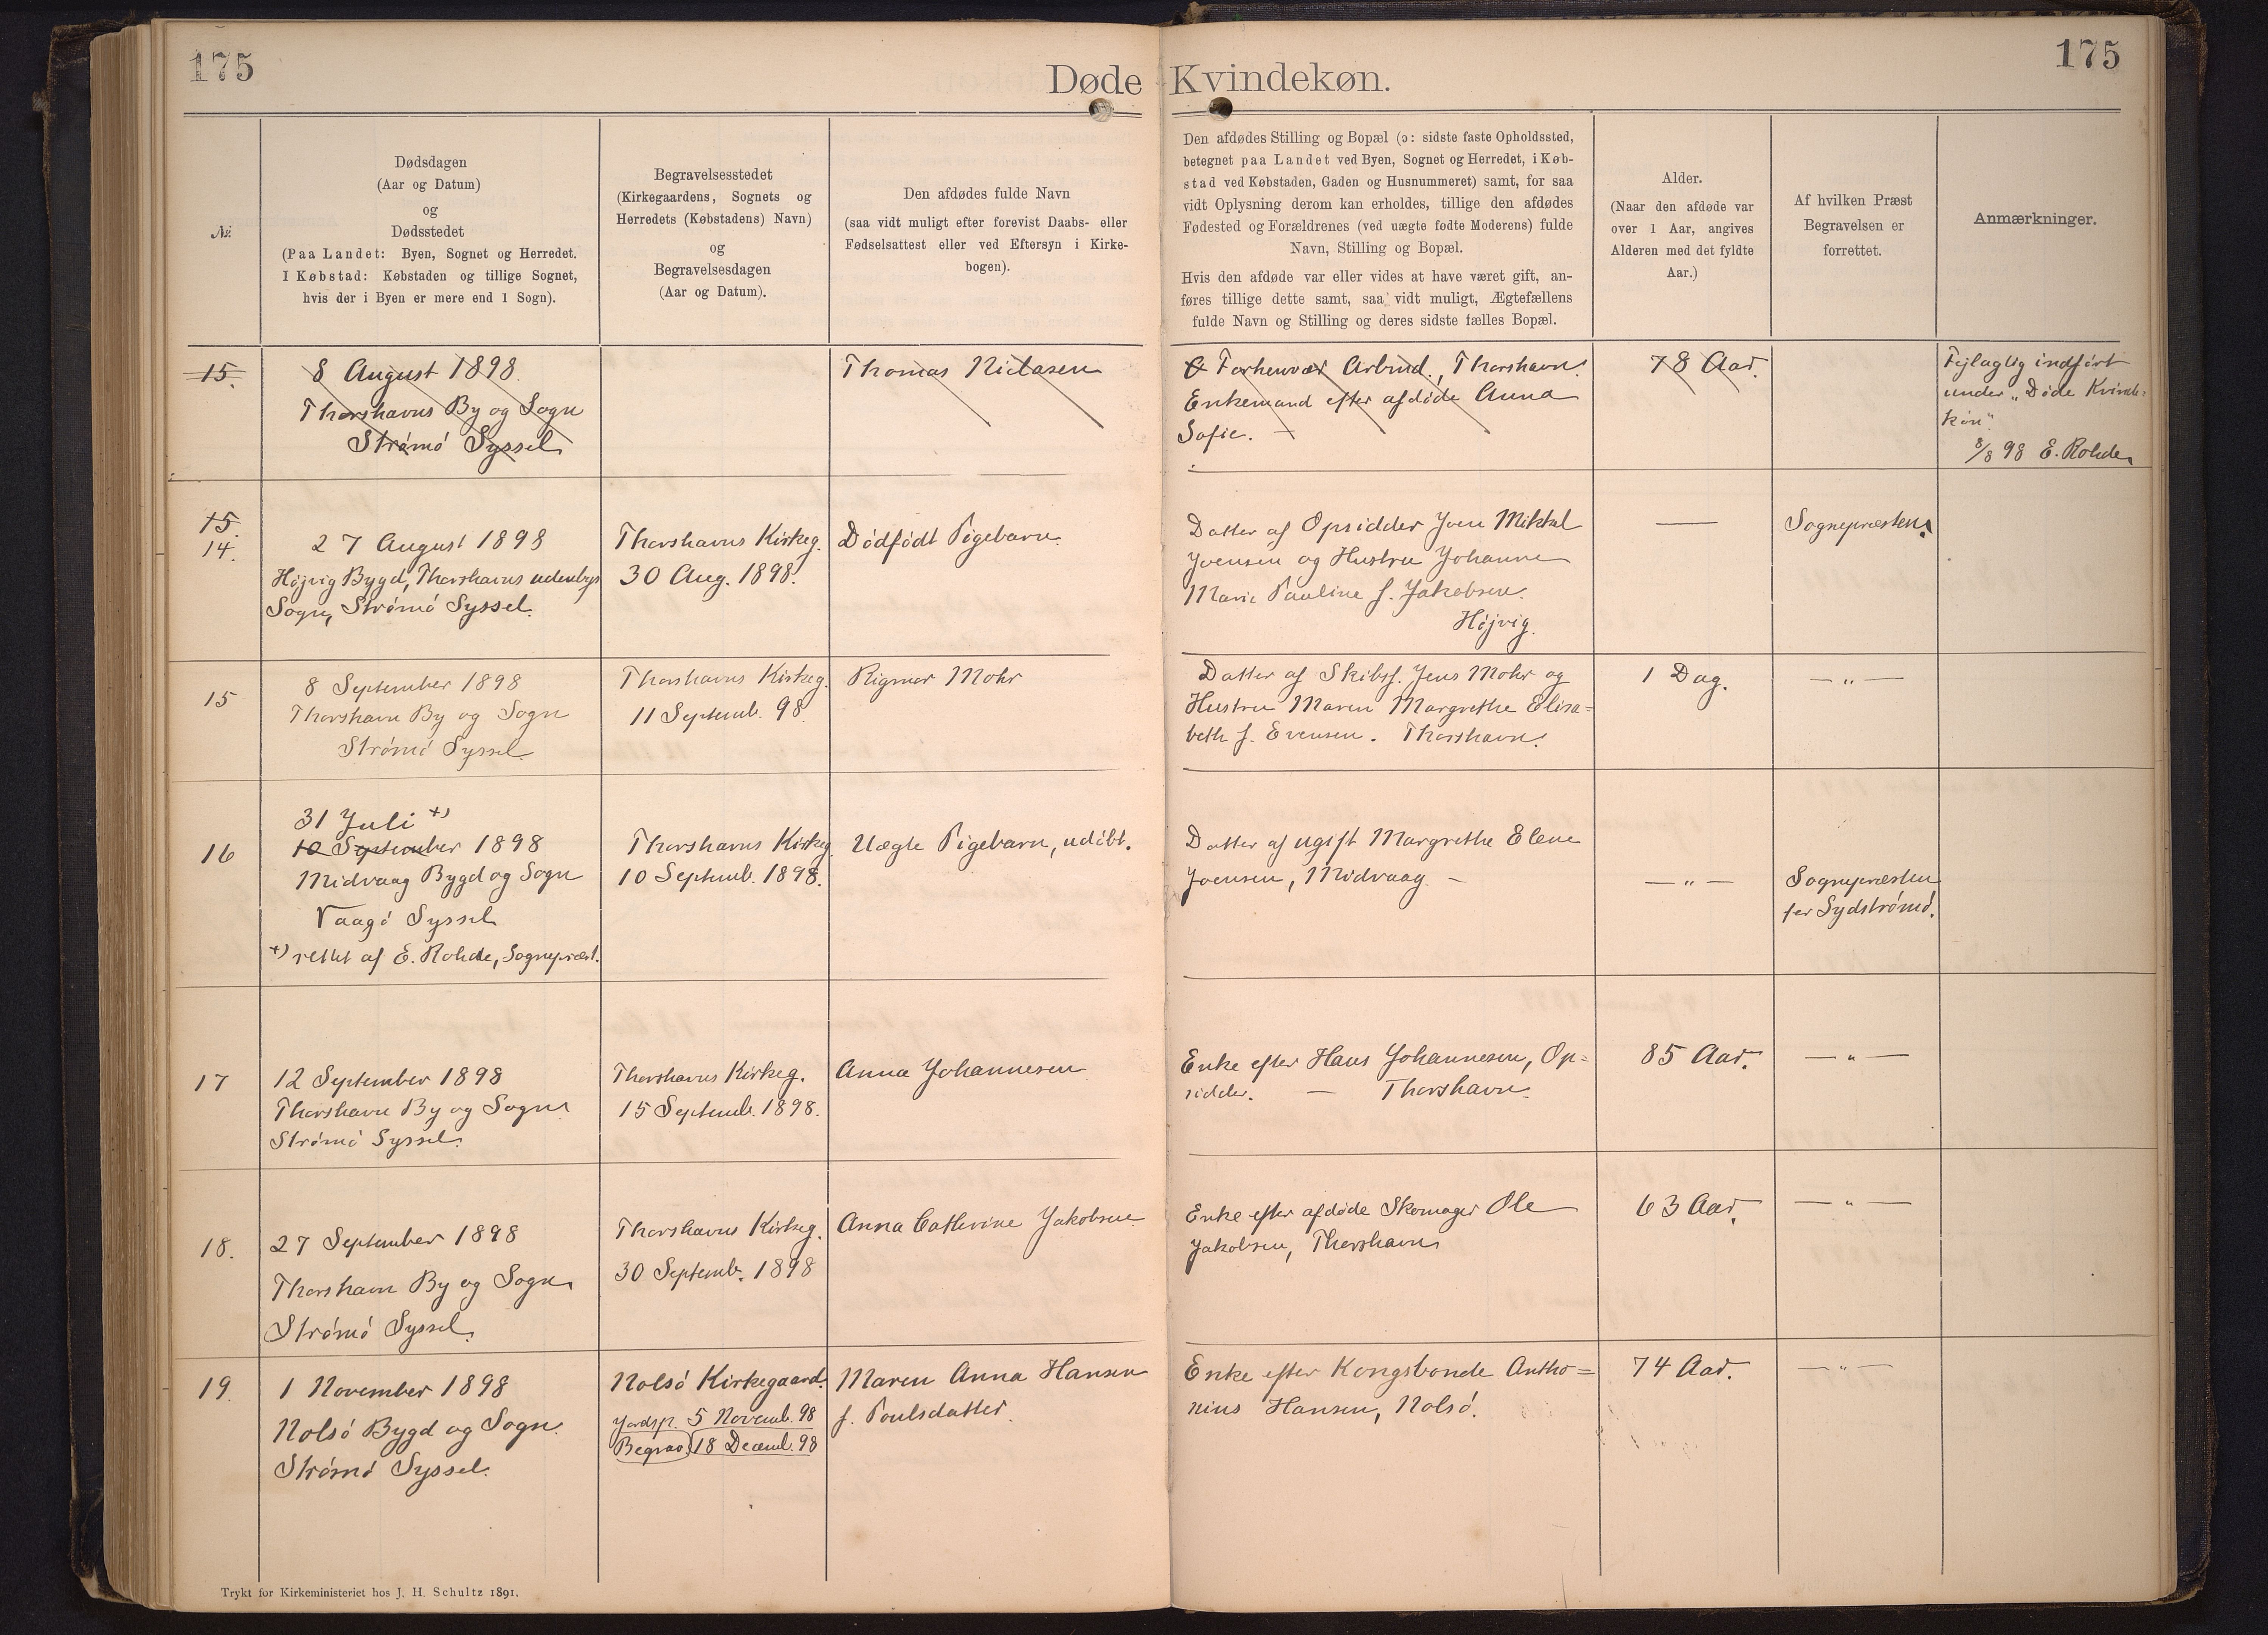 175
Døde Kvindekøn.
175
№.
Dødsdagen
(Aar og Datum)
og
Dødsstedet
(Paa Landet: Byen, Sognet og Herredet.
I Købstad: Købstaden og tillige Sognet,
hvis der i Byen er mere end 1 Sogn).
Begravelsesstedet
(Kirkegaardens, Sognets og
Herredets (Købstadens) Navn)
og
Begravelsesdagen
(Aar og Datum).
Den afdødes fulde Navn
(saa vidt muligt efter forevist Daabs- eller
Fødselsattest eller ved Eftersyn i Kirke-
bogen).
Den afdødes Stilling og Bopæl (ɔ: sidste faste Opholdssted,
betegnet paa Landet ved Byen, Sognet og Herredet, i Køb-
stad ved Købstaden, Gaden og Husnummeret) samt, for saa
vidt Oplysning derom kan erholdes, tillige den afdødes
Fødested og Forældrenes (ved uægte fødte Moderens) fulde
Navn, Stilling og Bopæl.
Hvis den afdøde var eller vides at have været gift, an-
føres tillige dette samt, saa vidt muligt, Ægtefællens
fulde Navn og Stilling og deres sidste fælles Bopæl.
Alder.
(Naar den afdøde var
over 1 Aar, angives
Alderen med det fyldte
Aar.)
Af hvilken Præst
Begravelsen er
forrettet.
Anmærkninger.
15.
8 August 1898.
Thorshavns By og Sogn
Strømø Syssel
Thomas Niclasen
Forhenvær Arbmd., Thorshavn.
Enkemand efter afdøde Anna
Sofie. —
78 Aar.
Fejlagtig indført
under „Døde Kvinde=
køn“.
8/8 98 E. Rohde
15.
14.
27 August 1898
Højvig Bygd, Thorshavns udenbys
Sogn, Strømø Syssel.
Thorshavns Kirkeg.
30 Aug. 1898.
Dødfødt Pigebarn.
Datter af Opsidder Joen Mikkal
Joensen og Hustru Johanne
Marie Pauline f. Jakobsen.
Højvig.
—
Sognepræsten.
15
8 September 1898
Thorshavn By og Sogn
Strømø Syssel
Thorshavns Kirkeg.
11 Septemb. 98.
Rigmor Mohr
Datter af Skibsf. Jens Mohr og
Hustru Maren Margrethe Elisa=
beth f. Evensen. Thorshavn.
1 Dag.
— „ —
16
31 Juli +)
10 September 1898
Midvaag Bygd og Sogn
Vaagø Syssel
+) rettet af E. Rohde, Sognepræst.
Thorshavns Kirkeg.
10 Septemb. 1898.
Uægte Pigebarn, udøbt.
Datter af ugift Margrethe Elene
Joensen, Midvaag. —
— „ —
Sognepræsten
for Sydstrømø.
17
12 September 1898
Thorshavn By og Sogn
Strømø Syssel.
Thorshavns Kirkeg.
15 Septemb. 1898.
Anna Johannesen
Enke efter Hans Johannesen, Op=
sidder. — Thorshavn.
85 Aar.
— „ —
18.
27 September 1898
Thorshavn By og Sogn
Strømø Syssel.
Thorshavns Kirkeg.
30 Septemb. 1898
Anna Cathrine Jakobsen
Enke efter afdøde Skomager Ole
Jakobsen, Thorshavn
63 Aar.
— „ —
19.
1 November 1898
Nolsø Bygd og Sogn.
Strømø Syssel.
Nolsø Kirkegaard.
Jordsp. 5 Novemb. 98
Begrav. 18 Decemb. 98
Maren Anna Hansen
f. Poulsdatter.
Enke efter Kongsbonde Antho=
nius Hansen, Nolsø.
74 Aar.
— „ —
Trykt for Kirkeministeriet hos J. H. Schultz 1891.